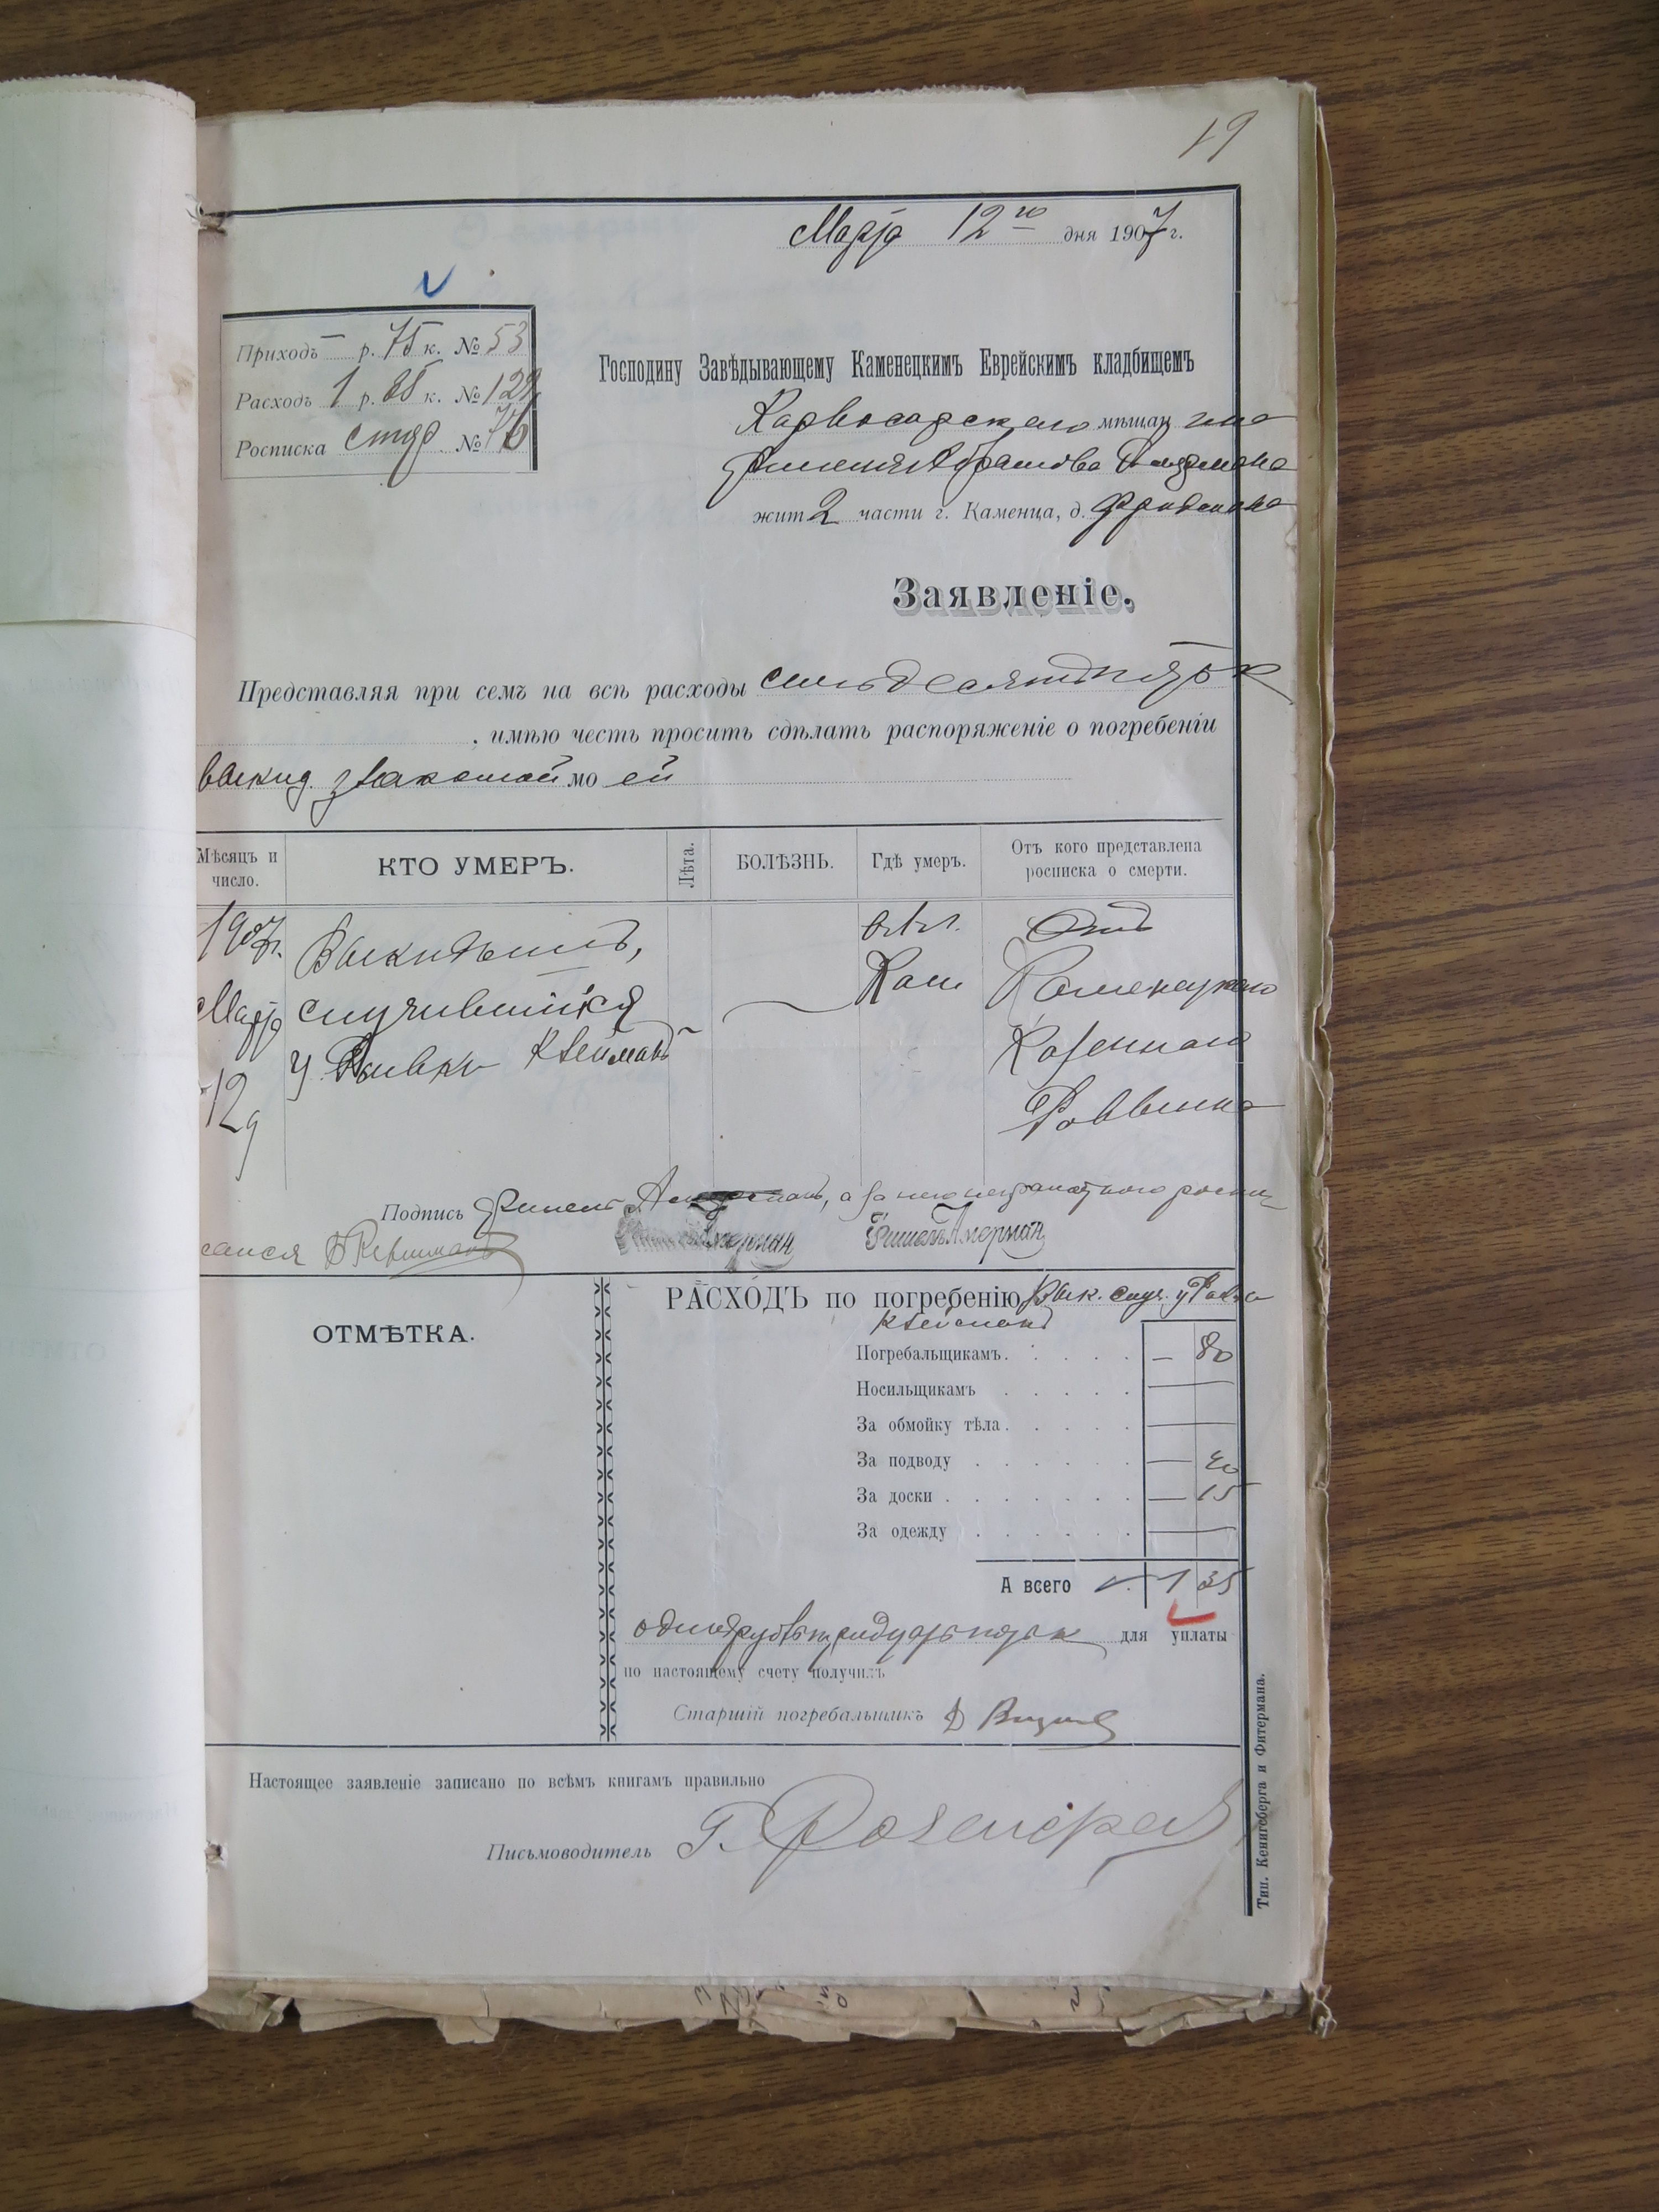 19
Марта 12го дня 1907 г.
Приходъ — р. 75 к. № 53
Расходъ 1 р. к. №
Росписка №
Господину Завѣдывающему Каменецкимъ Еврейскимъ кладбищемъ
Карвасарскаго мѣщанина
Фишеля Абрамова
жит 2 части г. Каменца, д. Фридмана
Заявленіе.
Представляя при семъ на всѣ расходы семьдесятъ пять к
, имѣю честь просить сдѣлать распоряженіе о погребеніи
выкид. знакомой мо ей
Мѣсяцъ и число.
КТО УМЕРЪ.
Лѣта.
БОЛѢЗНЬ.
Гдѣ умеръ.
Отъ кого представлена росписка о смерти.
1907г.
Марта
12д
Выкидышъ,
случившійся
у Клейманъ
в г.
Кам
Отъ
Каменецкаго
Казеннаго
Раввина
Подпись Фишель а за него неграмотнаго роспи
сался
Фишель Акерман
РАСХОДЪ по погребенію Вык. случ. у
Клейманъ
ОТМѢТКА.
Погребальщикамъ. — 80
Носильщикамъ —
За обмойку тѣла. —
За подводу — 40
За доски — 15
За одежду —
А всего 1 35
одинъ рубль тридцать пять к для уплаты
по настоящему счету получилъ
Старшій погребальщикъ
Настоящее заявленіе записано по всѣмъ книгамъ правильно
Письмоводитель Г.
Тип. Кенигсберга и Фитермана.